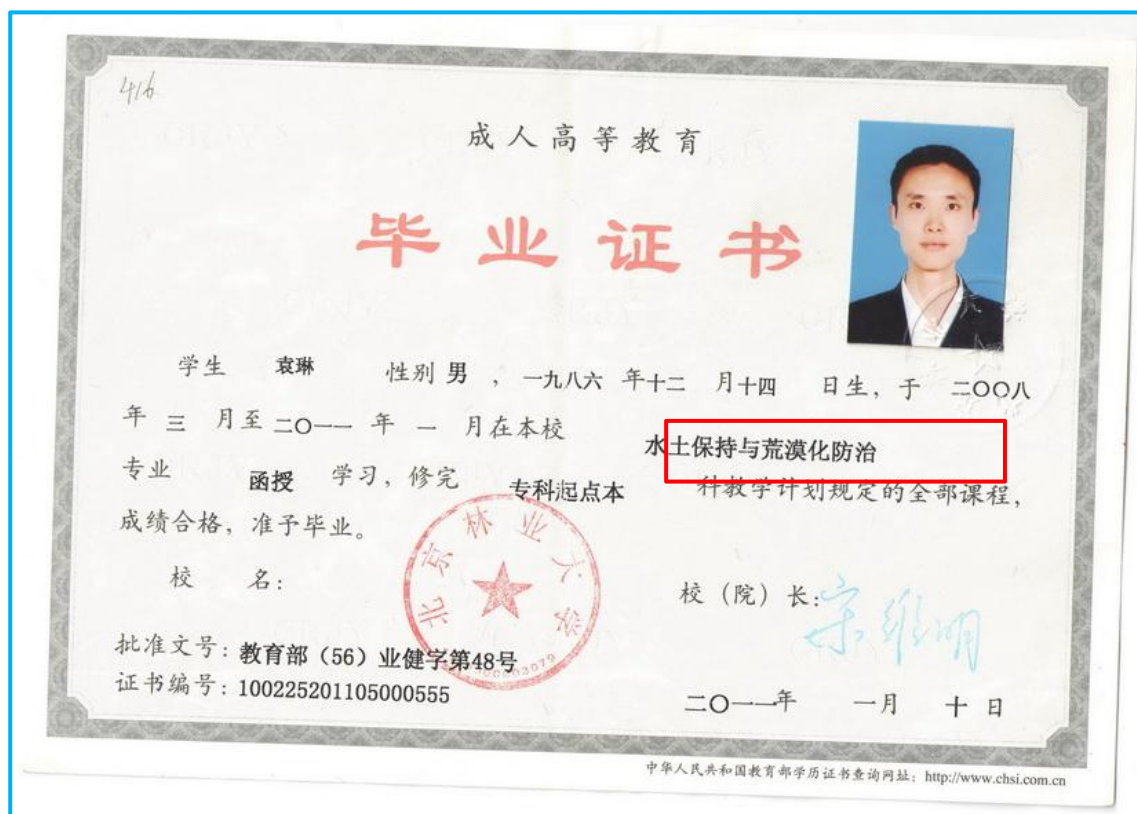 416
成人高等教育
毕业证书
学生 袁琳 性别 男 ，一九八六 年十二 月十四 日生，于 二〇〇八
年 三 月至 二〇一一 年 一 月在本校 水土保持与荒漠化防治
专业 函授 学习，修完 专科起点本 科教学计划规定的全部课程，
成绩合格，准予毕业。
北京林业大学
校 名： 校（院）长：宋维明
批准文号：教育部（56）业健字第48号
证书编号：100225201105000555
二〇一一年 一月 十日
中华人民共和国教育部学历证书查询网址：http://www.chsi.com.cn